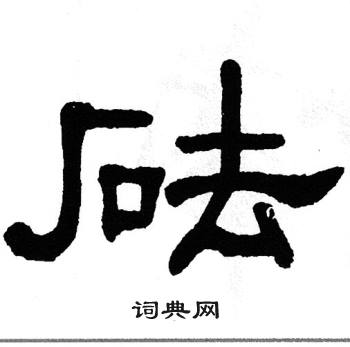 砝
词典网